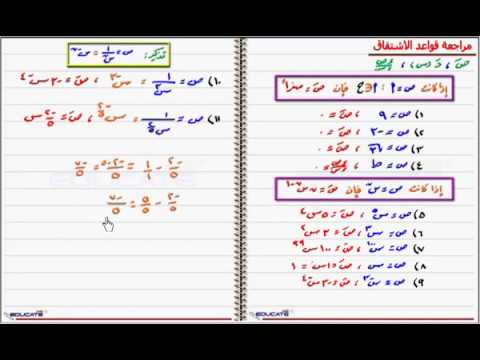 مراجعة قواعد الاشتقاق
إذا كانت ص = أ ؛ أ ∈ ح فإن صَ = صفرًا
١) ص = ٩ ، صَ = ٠
٢) ص = -٢ ، صَ = ٠
٣) ص = ٢√ ، صَ = ٠
٤) ص = ط ، صَ = ٠
إذا كانت ص = س^ن فإن صَ = ن س^(ن-١)
٥) ص = س^٥ ، صَ = ٥ س^٤
٦) ص = س^٣ ، صَ = ٣ س^٢
٧) ص = س^١٠٠ ، صَ = ١٠٠ س^٩٩
٨) ص = س ، صَ = ١ س^٠ = ١
٩) ص = س^-٣ ، صَ = -٣ س^-٤
تذكير: ص = ١/س^ن = س^-ن
١٠) ص = ١/س^٣ = س^-٣ ، صَ = -٣ س^-٤
١١) ص = = ، صَ = -٢/٥ س
-٢/٥ - ١/١ = (-٢-٥)/٥ = -٧/٥
-٢/٥ - ٥/٥ = -٧/٥
EDUCATE
EDUCATE